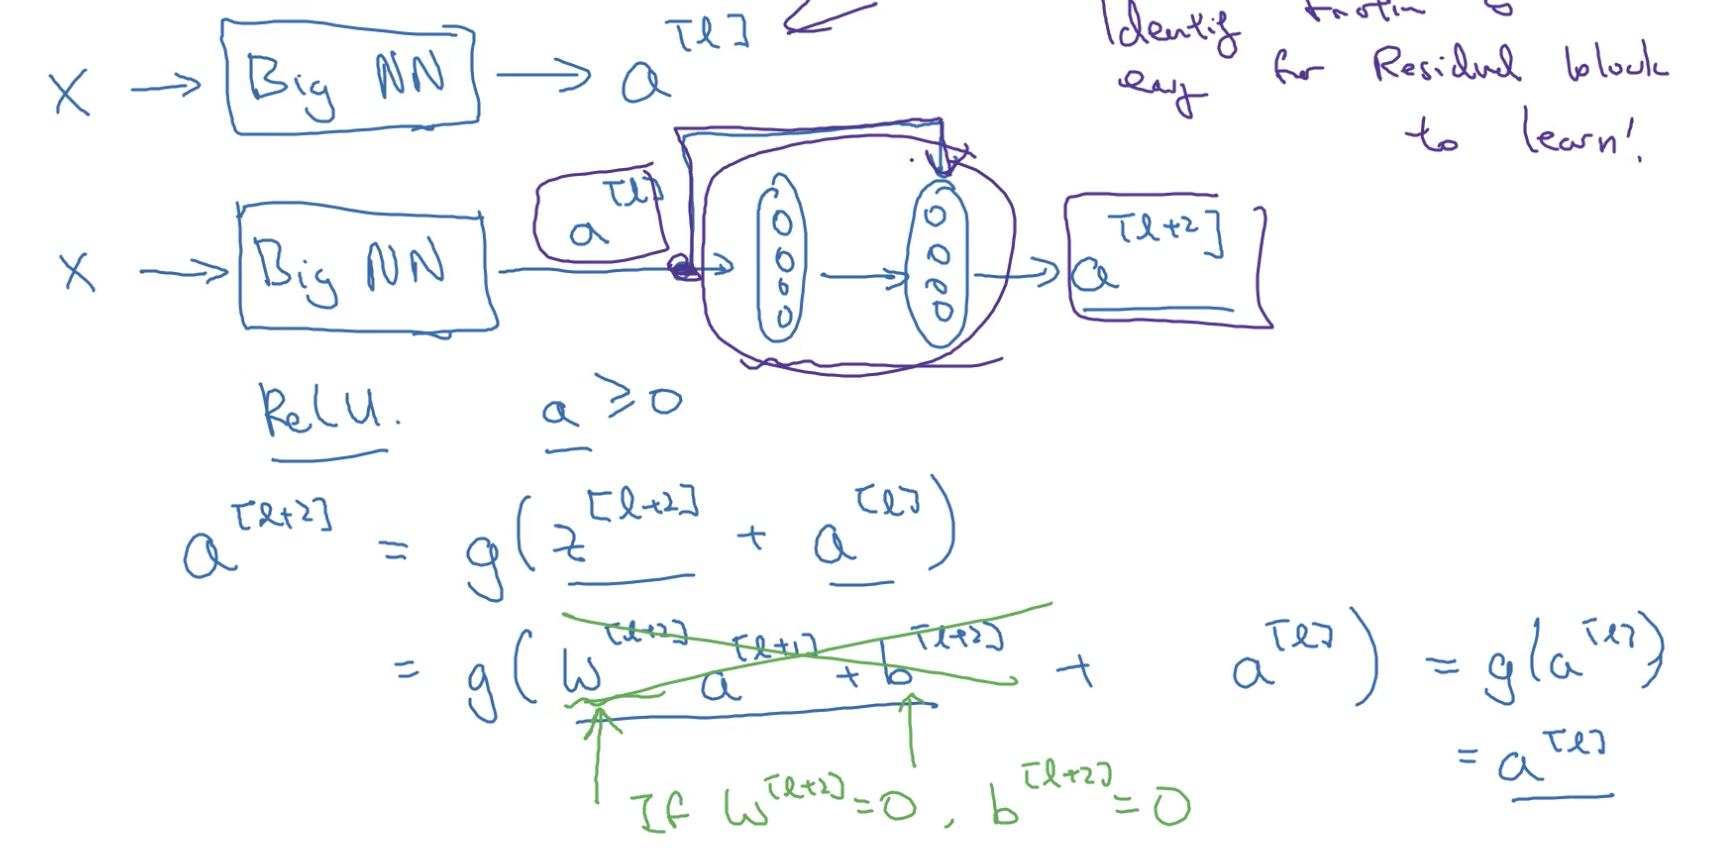 X → Big NN → a^[l]
Identity
easy for Residual block
to learn!
X → Big NN → a^[l] → → a^[l+2]
ReLU. a ≥ 0
a^[l+2] = g(z^[l+2] + a^[l])
= g(W^[l+2] a^[l+1] + b^[l+2] + a^[l]) = g(a^[l])
= a^[l]
If W^[l+2] = 0, b^[l+2] = 0